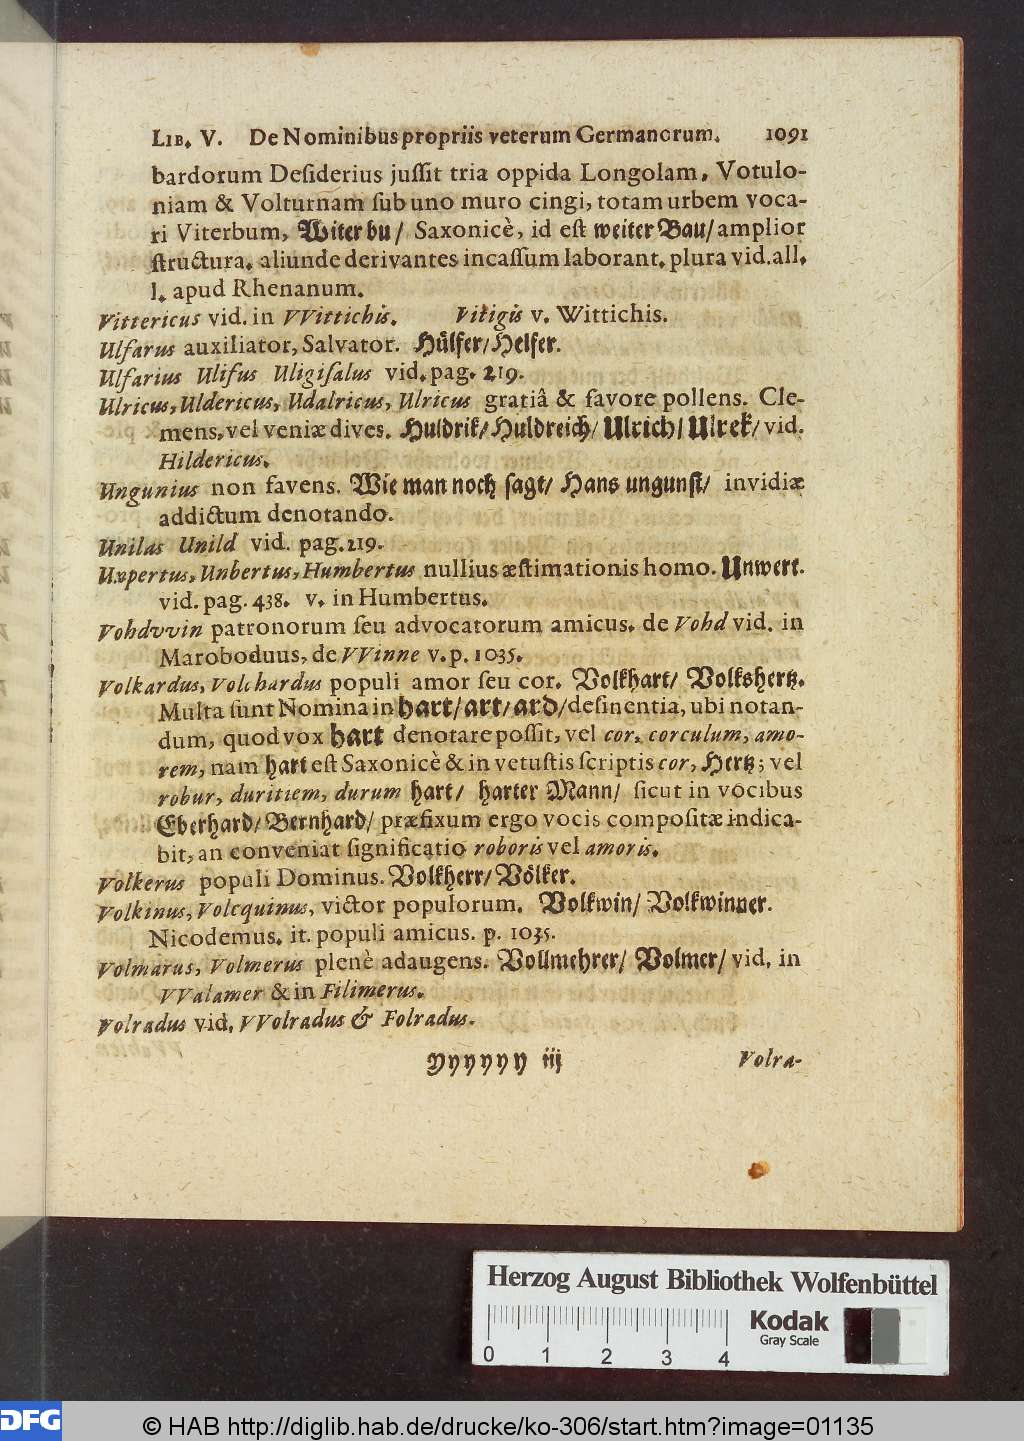 LIB. V. De Nominibus propriis veterum Germanorum. 1091
bardorum Desiderius jussit tria oppida Longolam, Votulo-
niam & Volturnam sub uno muro cingi, totam urbem voca-
ri Viterbum, Witerbu/ Saxonicè, id est weiter Bau/ amplior
structura. aliunde derivantes incassum laborant. plura vid. all.
l. apud Rhenanum.
Vittericus vid. in VVittichis. Vitigis v. Wittichis.
Ulfarus auxiliator, Salvator. Hülfer/ Helfer.
Ulfarius Ulifus Uligisalus vid. pag. 219.
Ulricus, Uldericus, Udalricus, Ulricus gratiâ & favore pollens. Cle-
mens, vel veniæ dives. Huldrik/ Huldreich/ Ulrich/ Ulrek/ vid.
Hildericus.
Ungunius non favens. Wie man noch sagt/ Hans ungunst/ invidiæ
addictum denotando.
Unilas Unild vid. pag. 219.
Uxpertus, Unbertus, Humbertus nullius æstimationis homo. Unwert.
vid. pag. 438. v. in Humbertus.
Vohdvvin patronorum seu advocatorum amicus. de Vohd vid. in
Maroboduus, de VVinne v. p. 1035.
Volkardus, Volchardus populi amor seu cor. Volkhart/ Volkshertz.
Multa sunt Nomina in hart/ art/ ard/ desinentia, ubi notan-
dum, quod vox hart denotare possit, vel cor, corculum, amo-
rem, nam hart est Saxonicè & in vetustis scriptis cor, Hertz; vel
robur, duritiem, durum hart/ harter Mann/ sicut in vocibus
Eberhard/ Bernhard/ præfixum ergo vocis compositæ indica-
bit, an conveniat significatio roboris vel amoris.
Volkerus populi Dominus. Volkherr/ Völker.
Volkinus, Volcquinus, victor populorum. Volkwin/ Volkwinner.
Nicodemus. it. populi amicus. p. 1035.
Volmarus, Volmerus plenè adaugens. Vollmehrer/ Volmer/ vid. in
VValamer & in Filimerus.
Volradus vid. VVolradus & Folradus.
Yyyyyy iij Volra-
Herzog August Bibliothek Wolfenbüttel
0 1 2 3 4
Kodak
Gray Scale
DFG © HAB http://diglib.hab.de/drucke/ko-306/start.htm?image=01135